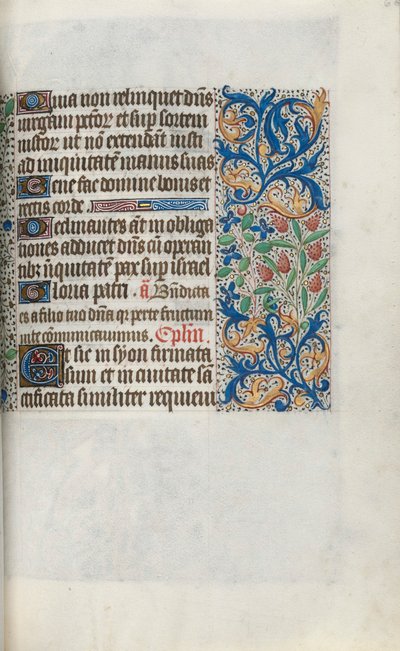 Quia non relinquet dn̄s
uirgam petor̄ et sup̄ sortem
iustor̄ ut nō extendāt iusti
ad iniquitatē manus suas
Bene fac domine bonis et
rectis corde
Declinantes aūt in obliga
tiones adducet dn̄s cū operan
tibz iniquitatē pax sup̄ israel
Gloria patri . ā Bn̄dicta
es a filio tuo dn̄a q̄ per te fructum
uite communicauimus. Cpłm
Et sic in syon firmata
sum et in ciuitate sā
ctificata similiter requieui